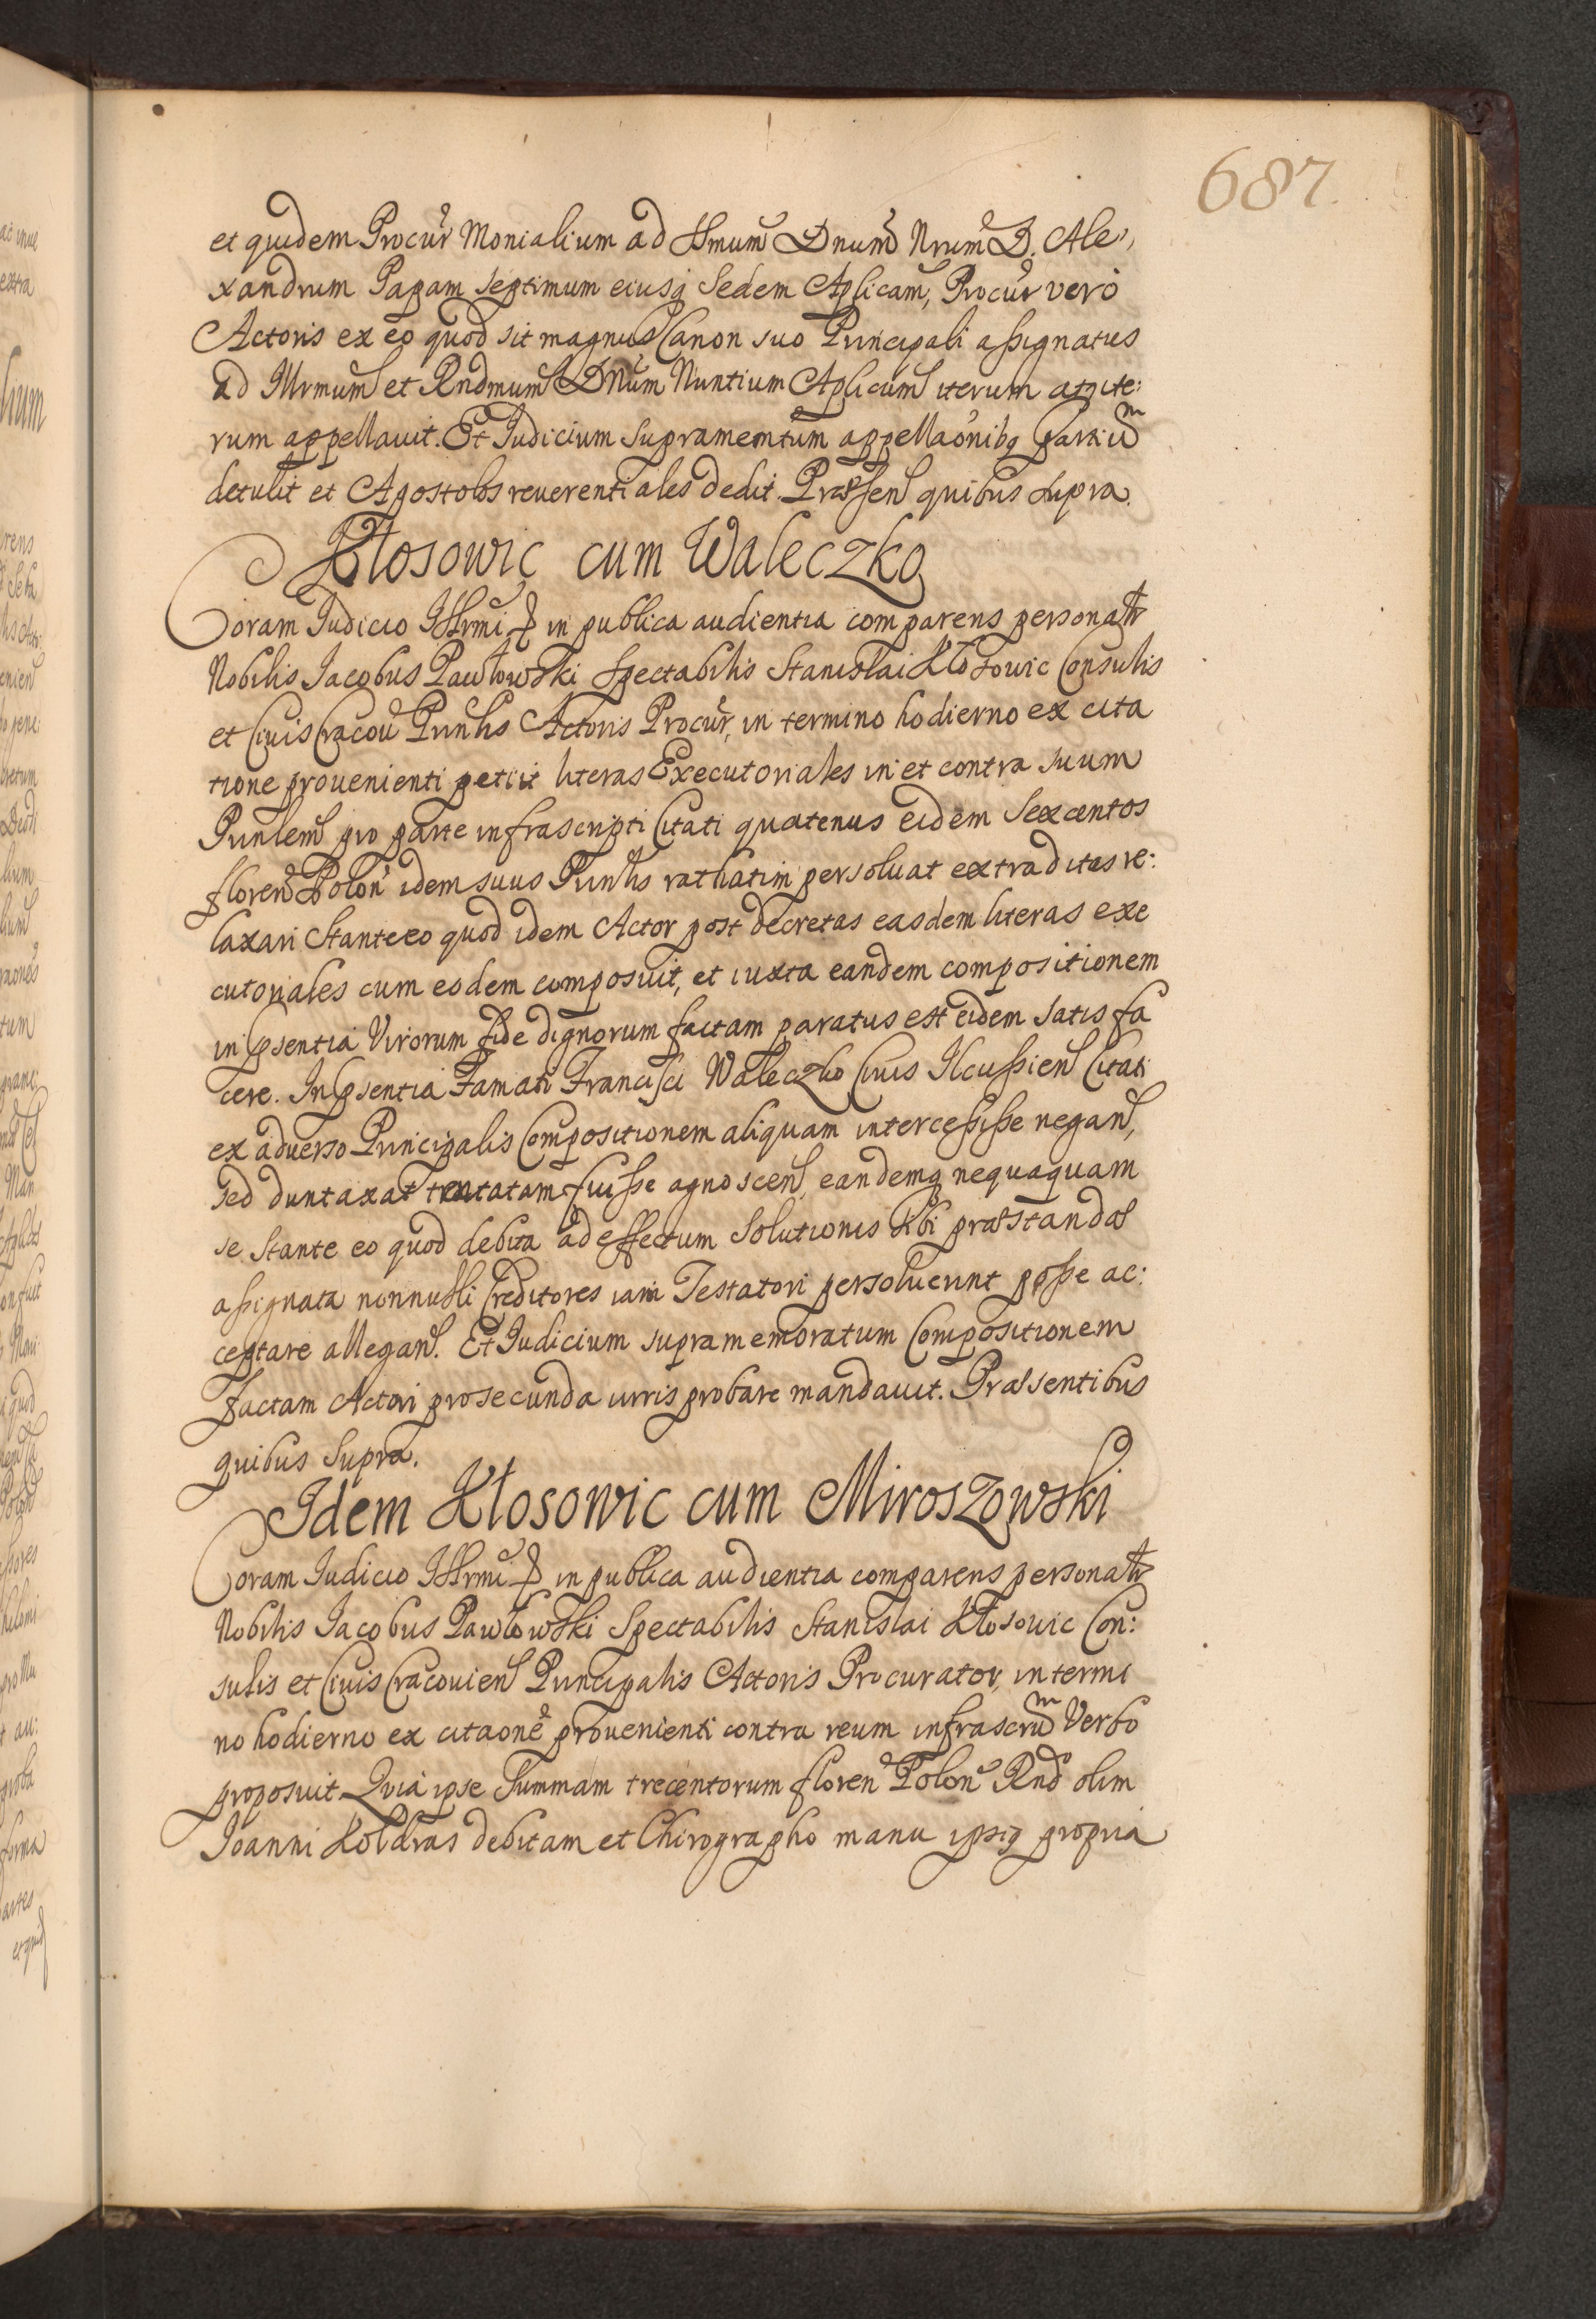 687.
et quidem Procur̃ Monialium ad SSmum Dnum Nrum D. Ale,
xandrum Papam septimum eiusq Sedem Aplicam, Procur̃ verò
Actoris ex eo quod sit magnus Canon suo Principali assignatus
ad Illrmum et Rndmum Dnum Nuntium Aplicum iterum atq ite:
rum appellauit. Et Judicium supramemtum appellaõnibq partium
detulit et Apostolos reuerentiales dedit. Præsen quibus supra.
Kłosowic cum Waleczko
Coram Judicio Illrmi in publica audientia comparens personatr
Nobilis Jacobus Pawłowski Spectabilis Stanislai Kłosowic Consulis
et Ciuis Cracou Prinlis Actoris Procur̃, in termino hodierno ex cita
tione prouenienti petiit literas Executoriales in et contra suum
Prinlem pro parte infrascripti Citati quatenus eidem Sexcentos
floren Polon idem suus Prinlis rathatim persoluat extraditas re:
laxari Stante eo quod idem Actor post decretas easdem literas exe
cutoriales cum eodem composuit, et iuxta eandem compositionem
in psentia Virorum fide dignorum factam paratus est eidem satis fa
cere. In psentia Famati Francisci Waleczko Ciuis Ilcussien Citati
ex aduerso Principalis Compositionem aliquam intercessisse negan,
sed duntaxat tentatam fuisse agnoscen, eandemq nequaquam
se stante eo quod debita ad effectum Solutionis sibi præstandæ
assignata nonnulli Creditores iam Testatori persoluerunt posse ac:
ceptare allegan. Et Judicium supramemoratum Compositionem
factam Actori pro secunda iuris probare mandauit. Præsentibus
quibus Supra.
Idem Kłosowic cum Miroszowski
Coram Judicio Illrmi in publica audientia comparens personatr
Nobilis Jacobus Pawłowski Spectabilis Stanislai Kłosowic Con:
sulis et Ciuis Cracouien Principalis Actoris Procurator, in termi
no hodierno ex citaone prouenienti contra reum infrascrum Verbo
proposuit. Quia ipse Summam trecentorum floren Polon Rnd olim
Joanni Koldras debitam et Chirographo manu ipsiq propria